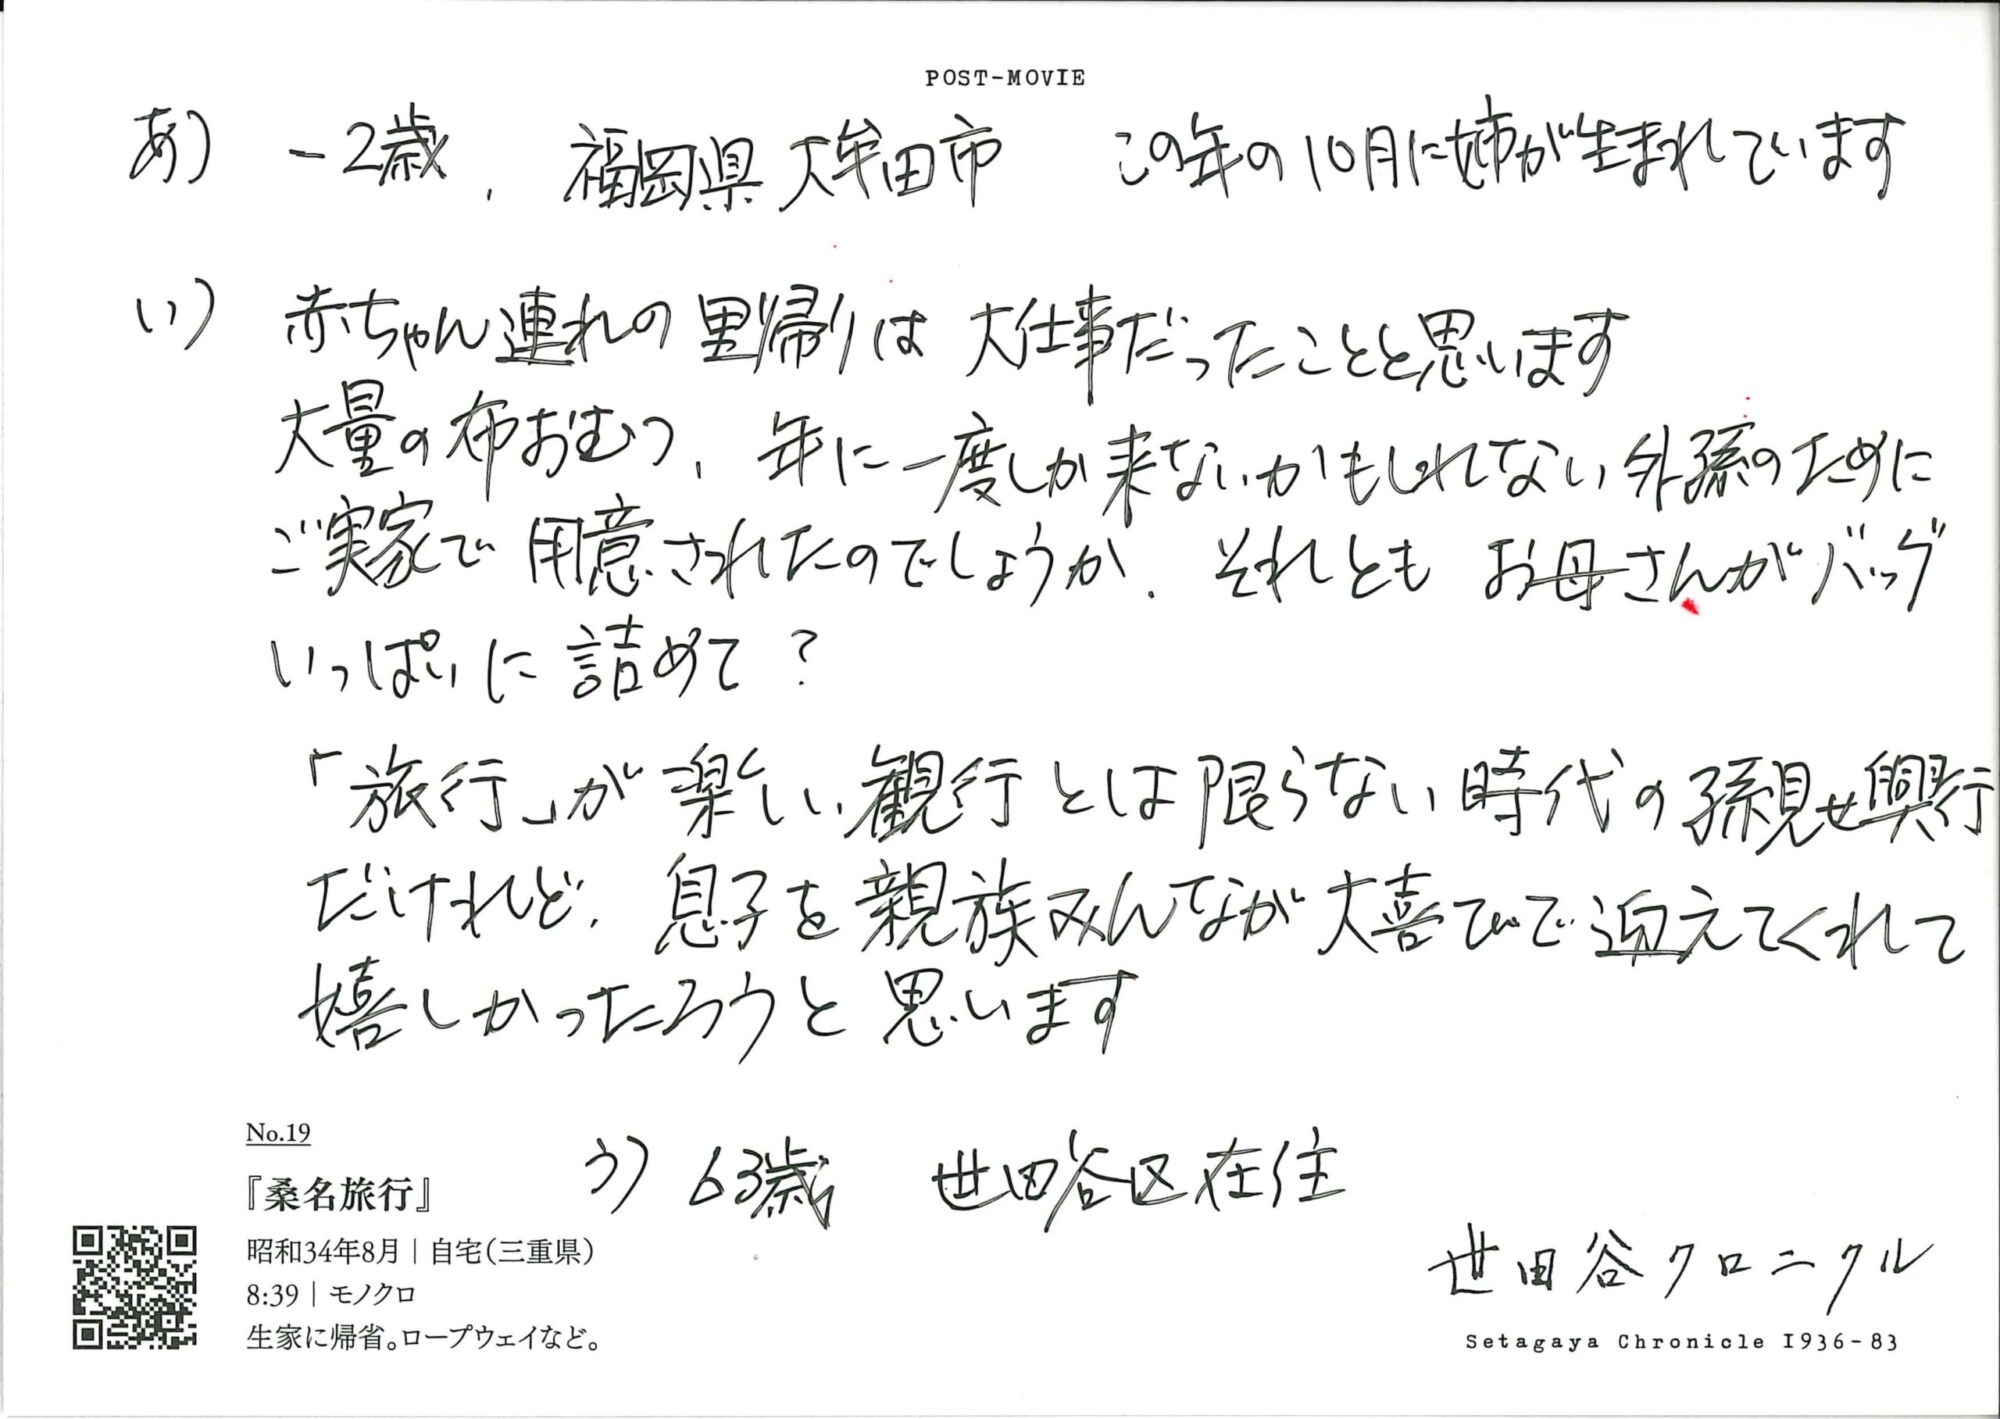 POST-MOVIE
あ) -2歳、福岡県大牟田市 この年の10月に姉が生まれています
い) 赤ちゃん連れの里帰りは大仕事だったことと思います
大量の布おむつ、年に一度しか来ないかもしれない外孫のために
ご実家で用意されたのでしょうか、それともお母さんがバッグ
いっぱいに詰めて?
「旅行」が楽しい観行とは限らない時代の孫見せ興行
だけれど、息子を親族みんなが大喜びで迎えてくれて
嬉しかったろうと思います
う) 63歳 世田谷区在住
No.19
『桑名旅行』
昭和34年8月|自宅(三重県)
8:39|モノクロ
生家に帰省。ロープウェイなど。
世田谷クロニクル
Setagaya Chronicle 1936-83